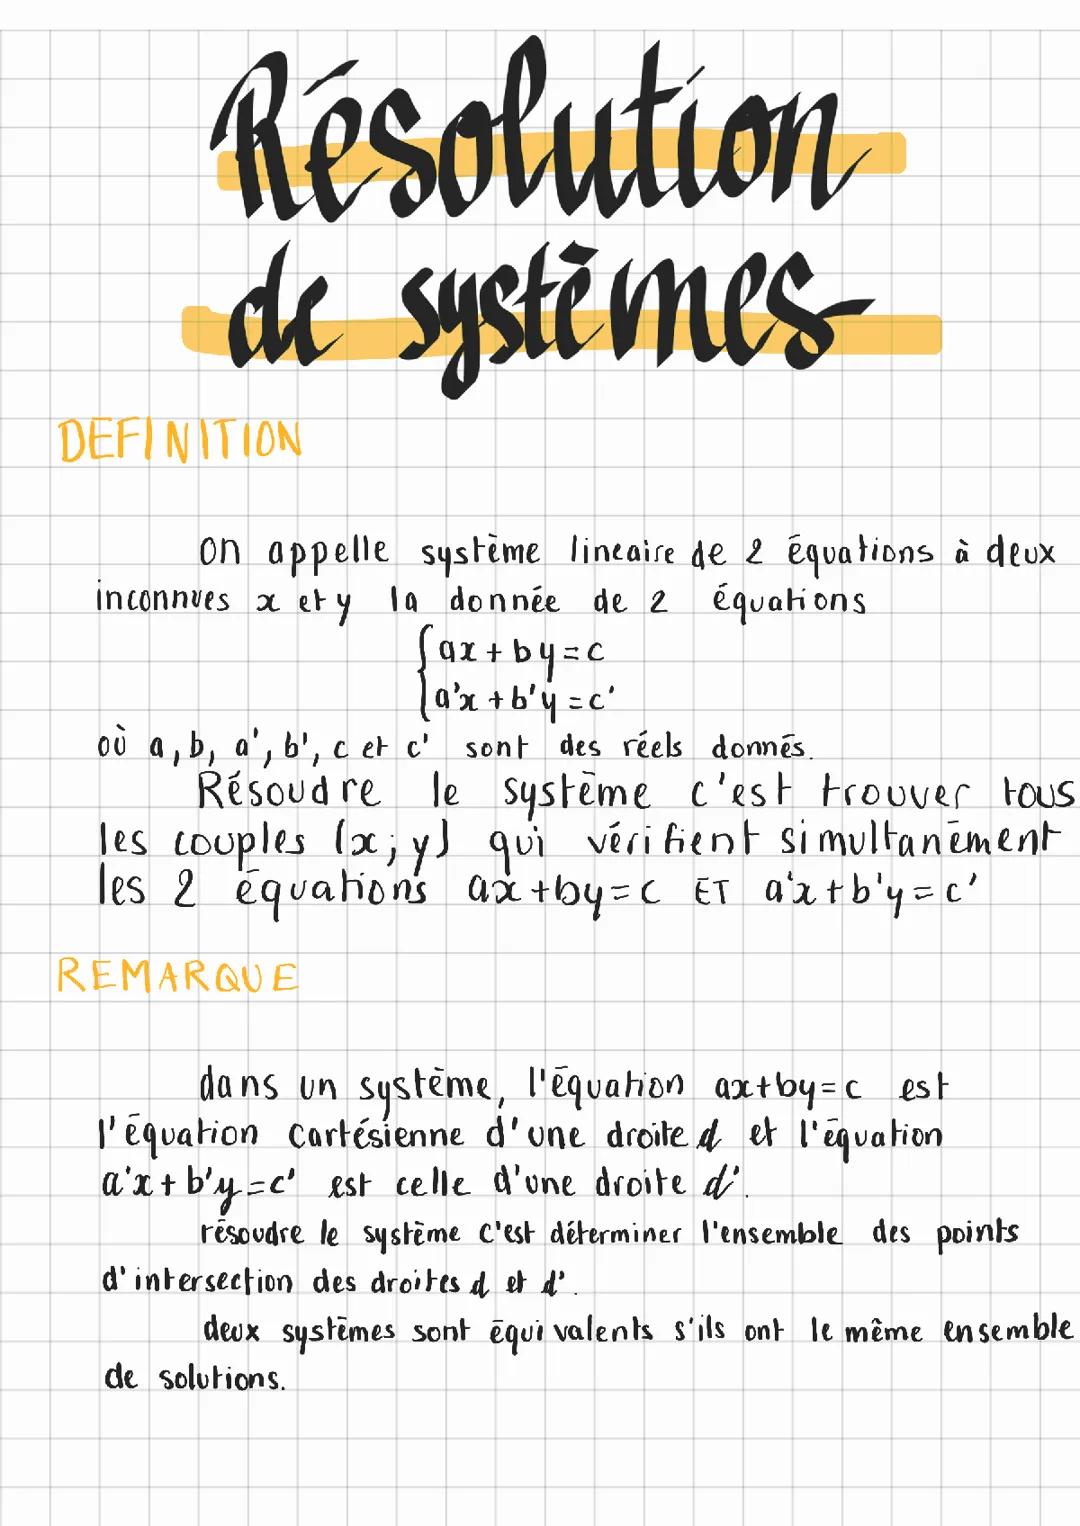 Résolution
de systèmes
DEFINITION
On appelle système linéaire de 2 équations à deux
inconnues x et y la donnée de 2 équations
{ax+by=c
a'x+b'y=c'
où a, b, a', b', c et c' sont des réels donnés.
Résoudre le système c'est trouver tous
les couples (x;y) qui vérifient simultanément
les 2 équations ax+by=c ET a'x+b'y=c'
REMARQUE
dans un système, l'équation ax+by=c est
l'équation cartésienne d'une droite d et l'équation
a'x+b'y=c' est celle d'une droite d'.
résoudre le système c'est déterminer l'ensemble des points
d'intersection des droites d et d'.
deux systèmes sont équivalents s'ils ont le même ensemble
de solutions.